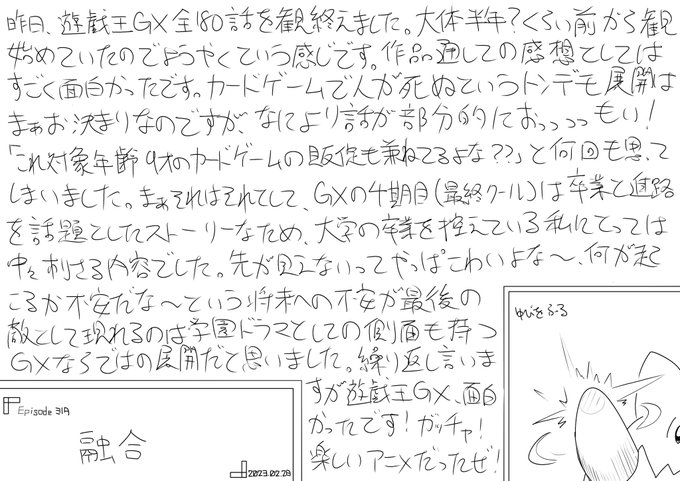 昨日、遊戯王GX全180話を観終えました。大体半年?くらい前から観
始めていたのでようやくという感じです。作品通しての感想としては
すごく面白かったです。カードゲームで人が死ぬというトンデモ展開は
まぁお決まりなのですが、なにより話が部分的におっっっっもい!
「これ対象年齢9才のカードゲームの販促も兼ねてるよな??」と何回も思って
しまいました。まぁそれはそれとして、GXの4期目(最終クール)は卒業と進路
を話題としたストーリーなため、大学の卒業を控えている私にとっては
中々刺さる内容でした。先が見えないってやっぱこわいよな〜、何が起
こるか不安だな〜という将来への不安が最後の
敵として現れるのは学園ドラマとしての側面も持つ
GXならではの展開だと思いました。繰り返し言いま
すが遊戯王GX、面白
かったです!ガッチャ!
楽しいアニメだったぜ!
Episode 319
融合
2023.02.28
ゆびをふ〜る